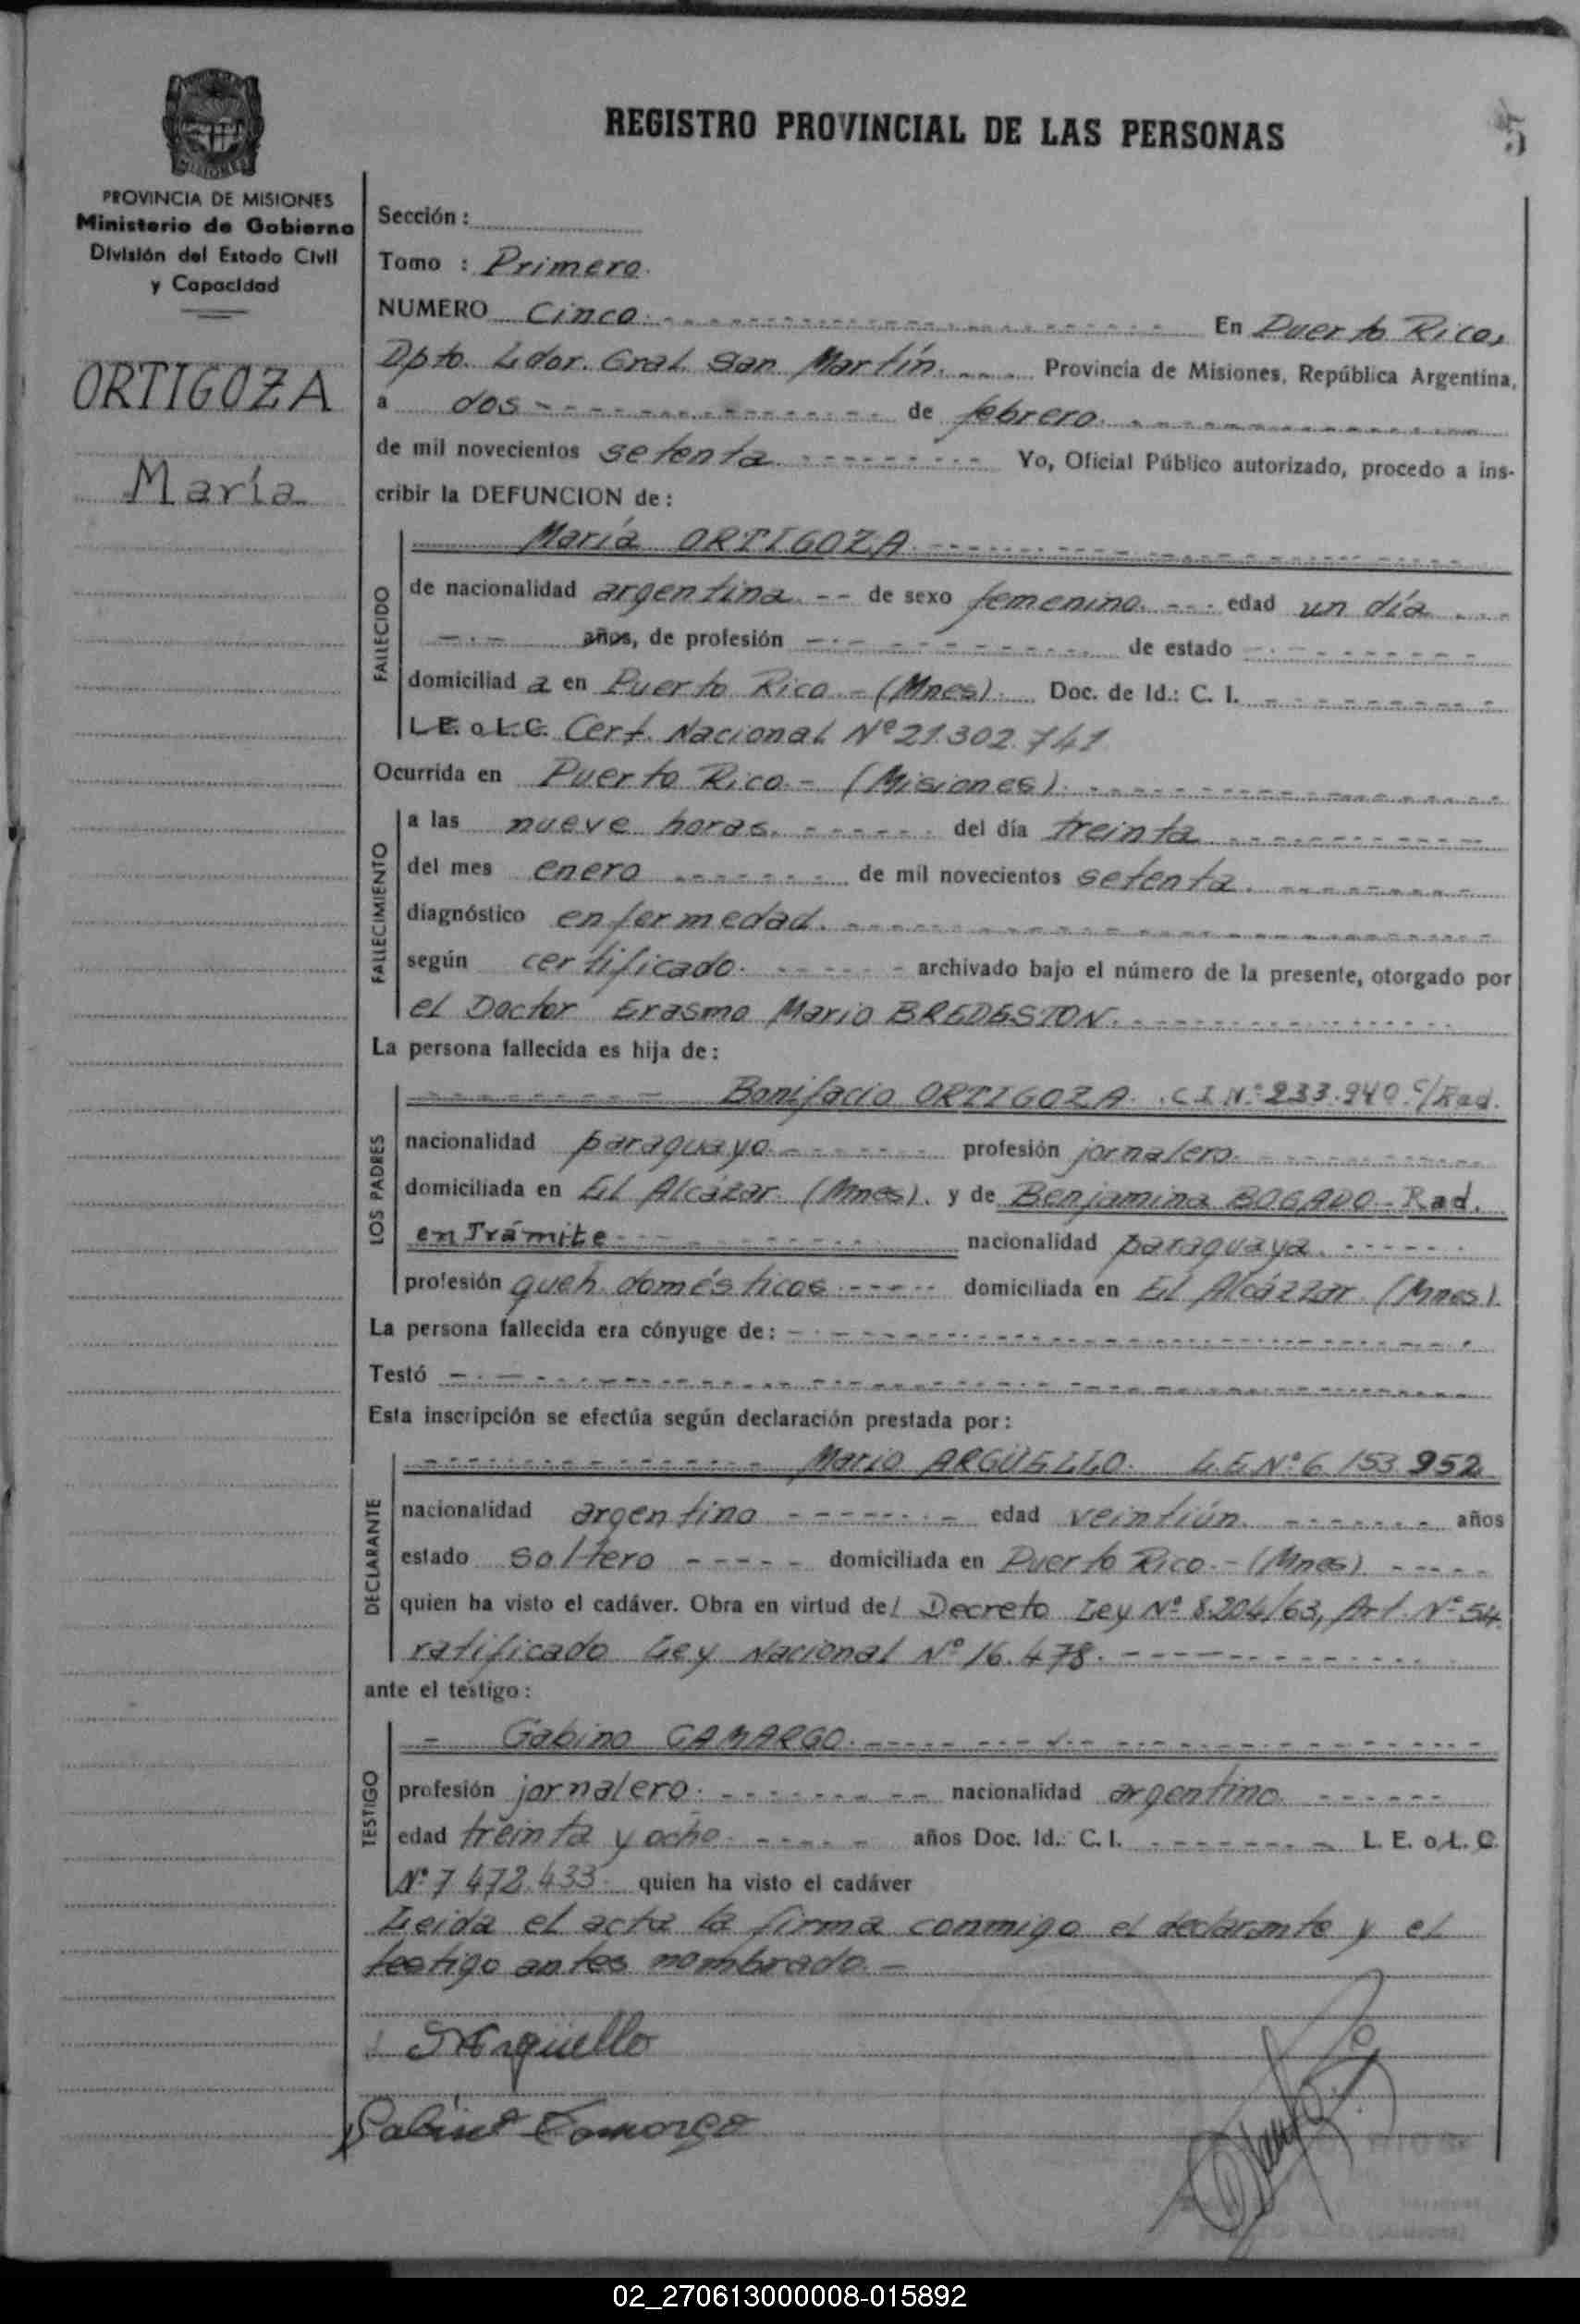 REGISTRO PROVINCIAL DE LAS PERSONAS
5
PROVINCIA DE MISIONES
Ministerio de Gobierno
División del Estado Civil
y Capacidad
ORTIGOZA
María
Sección :
Tomo : Primero.
NUMERO Cinco. En Puerto Rico,
Dpto. Ldor. Gral. San Martín. Provincia de Misiones, República Argentina,
a dos de febrero.
de mil novecientos setenta Yo, Oficial Público autorizado, procedo a ins-
cribir la DEFUNCION de :
FALLECIDO
María ORTIGOZA.
de nacionalidad argentina de sexo femenino. edad un día
años, de profesión de estado
domiciliad a en Puerto Rico - (Mnes). Doc. de Id.: C. I.
L.E. o L.C. Cert. Nacional Nº 21.302.741
Ocurrida en Puerto Rico.- (Misiones).
FALLECIMIENTO
a las nueve horas. del día treinta
del mes enero de mil novecientos setenta.
diagnóstico enfermedad.
según certificado. archivado bajo el número de la presente, otorgado por
el Doctor Erasmo Mario BREDESTON.
La persona fallecida es hija de :
LOS PADRES
Bonifacio ORTIGOZA. C.I.Nº 233.940 c/Rad.
nacionalidad paraguayo. profesión jornalero.
domiciliada en El Alcázar. (Mnes). y de Benjamina BOGADO - Rad.
en Trámite nacionalidad paraguaya.
profesión queh. domésticos domiciliada en El Alcázzar. (Mnes).
La persona fallecida era cónyuge de :
Testó
Esta inscripción se efectúa según declaración prestada por :
DECLARANTE
Mario ARGÜELLO. L.E.Nº 6.153.952
nacionalidad argentino edad veintiún. años
estado soltero domiciliada en Puerto Rico.- (Mnes).
quien ha visto el cadáver. Obra en virtud del Decreto Ley Nº 8.204/63, Art. Nº 54.
ratificado Ley Nacional Nº 16.478.
ante el testigo :
TESTIGO
Gabino CAMARGO.
profesión jornalero. nacionalidad argentino.
edad treinta y ocho. años Doc. Id.: C. I. L. E. o L. C.
Nº 7.472.433. quien ha visto el cadáver
Leida el acta la firma conmigo el declarante y el
testigo antes nombrado.-
Argüello
Gabino Camargo
02_270613000008-015892